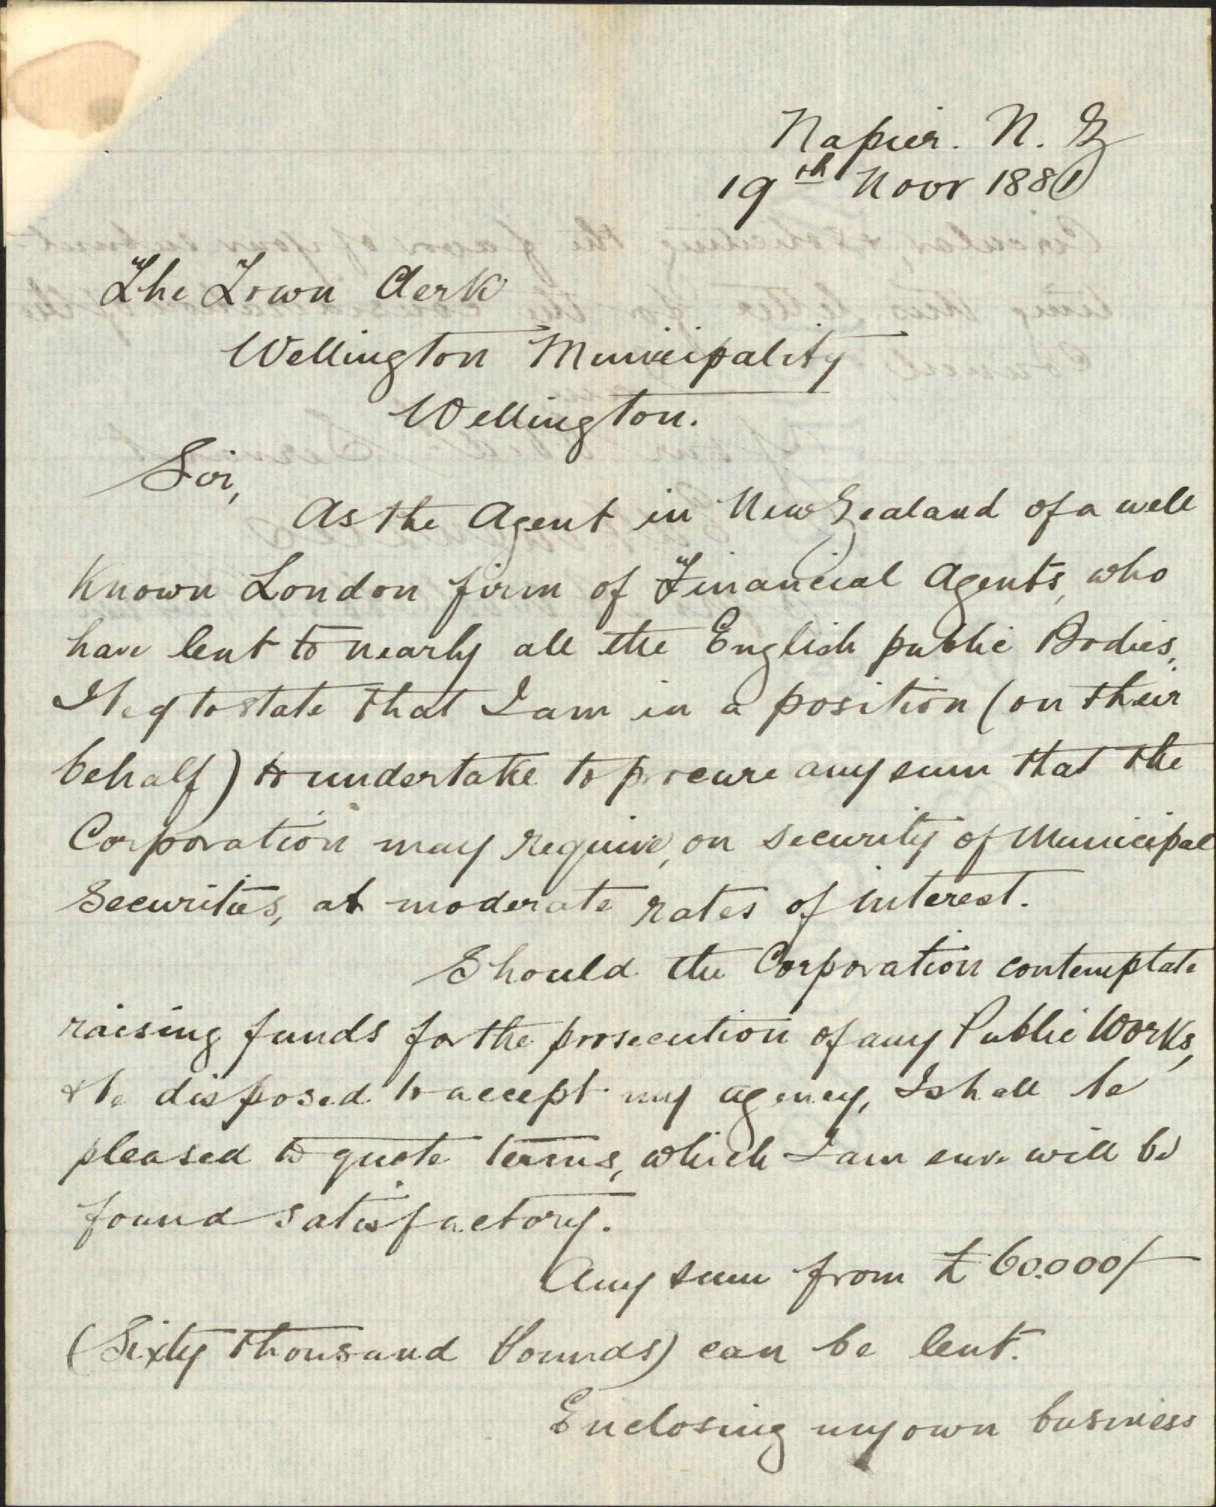 Napier. N. Z
19th Novr 1881
The Town Clerk
Wellington Municipality
Wellington.
Sir,
As the Agent in New Zealand of a well
known London firm of Financial Agents, who
have lent to nearly all the English public Bodies,
I beg to state that I am in a position (on their
behalf) to undertake to procure any sum that the
Corporation may require, on security of Municipal
Securities, at moderate rates of interest.
Should the Corporation contemplate
raising funds for the prosecution of any Public Works,
& be disposed to accept my agency, I shall be
pleased to quote terms, which I am sure will be
found satisfactory.
Any sum from £60.000/-
(Sixty thousand Pounds) can be lent.
Enclosing my own business